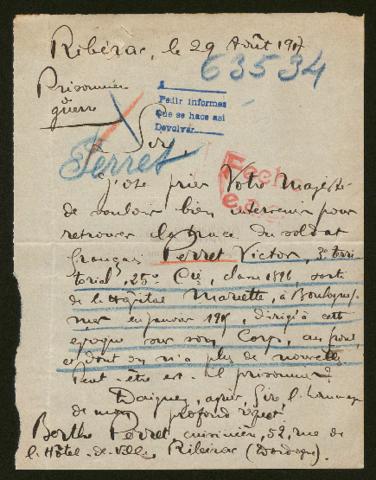 Ribérac, le 29 Août 1917
63534
Prisonnier
de guerre
A
Pedir informes
Que se hace asi
Devolver
Sire,
Perret
J'ose prier Votre Majesté
de vouloir bien intervenir pour
retrouver la trace du soldat
français Perret Victor, 3e terri
torial, 25e Cie, classe 1896, sorti
de l'Hôpital Mariette, à Boulogne s/
mer en janvier 1915, dirigé à cette
époque sur son Corps, au front
et dont on n'a plus de nouvelles
Peut-être est-il prisonnier?
Daignez, agréer, Sire l'hommage
de mon profond respect
Berthe Perret cuisinière, 52, rue de
l'Hôtel-de-Ville Ribérac (Dordogne).